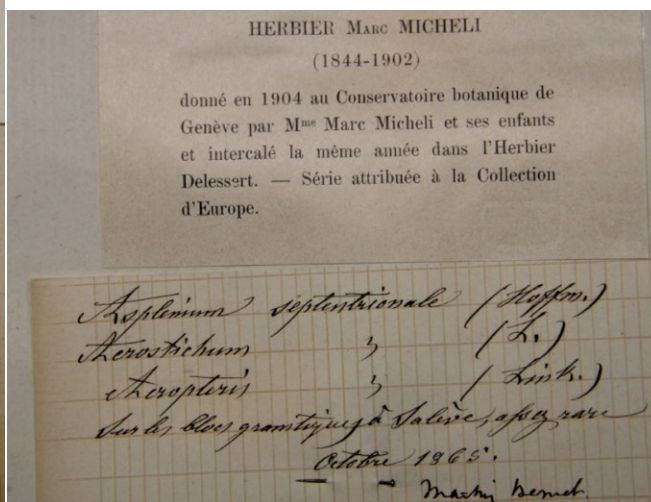 HERBIER MARC MICHELI
(1844-1902)
donné en 1904 au Conservatoire botanique de
Genève par Mme Marc Micheli et ses enfants
et intercalé la même année dans l'Herbier
Delessert. — Série attribuée à la Collection
d'Europe.
Asplenium septentrionale (Hoffm.)
Acrostichum " (L.)
Acropteris " (Link.)
Sur les blocs granitiques à Salève, assez rare
Octobre 1865.